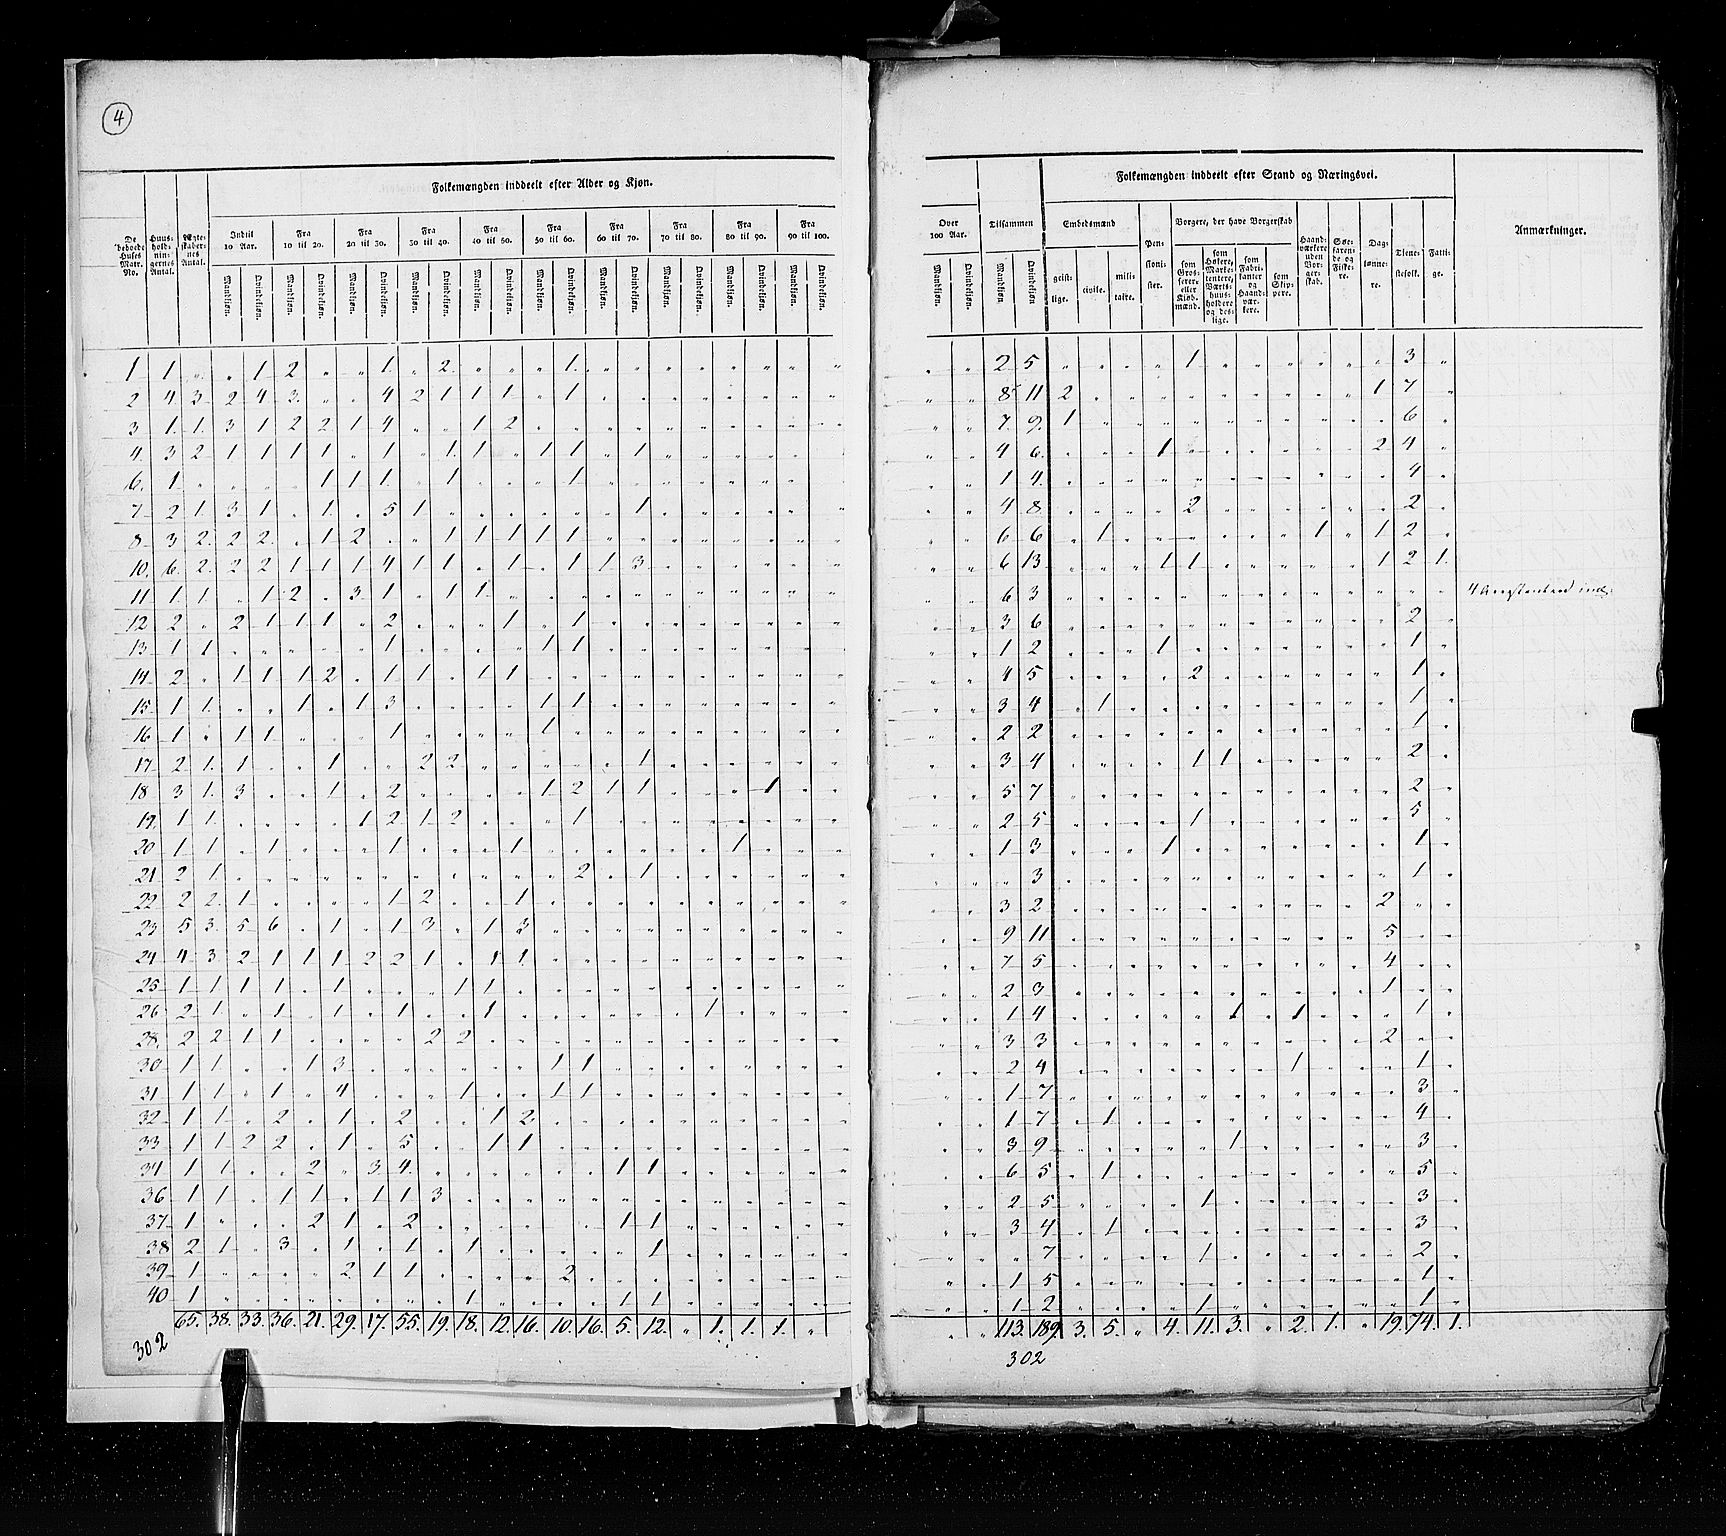 4
Folkemængden inddeelt efter Alder og Kjøn.
De beboede Huses Matr. No.
Huus-hold-nin-gernes Antal.
Ægte-skaber-nes Antal.
Indtil 10 Aar.
Fra 10 til 20.
Fra 20 til 30.
Fra 30 til 40.
Fra 40 til 50.
Fra 50 til 60.
Fra 60 til 70.
Fra 70 til 80.
Fra 80 til 90.
Fra 90 til 100.
Mandkjøn. Qvindekjøn. Mandkjøn. Qvindekjøn. Mandkjøn. Qvindekjøn. Mandkjøn. Qvindekjøn. Mandkjøn. Qvindekjøn. Mandkjøn. Qvindekjøn. Mandkjøn. Qvindekjøn. Mandkjøn. Qvindekjøn. Mandkjøn. Qvindekjøn. Mandkjøn. Qvindekjøn.
1 1 " " 1 2 " " 1. " 2. " " " 1. " " " " " " " "
2 4 3 2 4 3. " " 4 2 1 1 1 " 1 " " " " " " " "
3 1. 1. 3 1 2 2 1 4 " " 1 2 " " " " " " " " " "
4. 3 2 1 1 1 1 " 1 " 1. 1 " 1 1 " 1 " " " " " "
6. 1 " " " " 1 1 1. " 1 " " " 1 " " " " " " " "
7 2 1 3 1 " 1 " 5 1 " " " " " " 1 " " " " " "
8 3 2. 2 2. " 1 2 " " 1 1 1 1 1 " " " " " " " "
10. 6. 2. 2 2 1 1 1 4 1 1 " 1 " 1 1 3 " " " " " "
11 1 1 " 1 2 " 3 1 " 1 1 " " " " " " " " " " "
12 2 " 2 1 1 1 " 2 " " " 1 " 1 " " " " " " " "
13 1 1 " " " " " 1 " " " " 1 1 " " " " " " " "
14 2 " 1 1 1 2 " 1 1 " 1 1 " " " " " " " " " "
15 1 1. " " 1 " 1 3 " " " " 1 1 " " " " " " " "
16 1 " 1 1 " " " 1 " " " " 1 " " " " " " " " "
17 2 1. 1 " " 1 " " 2 2 " " " " " 1 " " " " " "
18 3 1. 3 " " 1 " 2 " " " " 1 2 1 1 " " " 1 " "
19. 1 1. " " " " 1 2 1 2 " " " 1 " " " " " " " "
20 1 1 " 1 " " " 1 " " " 1 " " " " " " 1 " " "
21 2 1. " " " " " " " " " " " 2 " 1 " " " " " "
22 2 2. 1 " " " " 1 2 " " 1 " " " " " " " " " "
23 5 3. 5 6 " 1 " 1 3 " 1 3 " " " " " " " " " "
24 4 3 2 1 1 1 2 2 1 " 1 1. " " " " " " " " " "
25 1 1 1 1 " 1 " " " 1 1 " " " " " " " " " " "
26 2 1 " 1 " 1 " 1 " " 1 " " " " " " 1 " " " "
28. 2 2 1 1 " " " " 2 2 " " " " " " " " " " " "
30 1 1 " " 1 3 " " " " " " 1 1 " " " " " " " "
31 1 1 " 1 " 4 " " " 1 " " 1 1 " " " " " " " "
32 1 1 " 2 " 1 " 2 " " 1 2 " " " " " " " " " "
33 1 1 2 2 " 1 " 5 " " 1 1 " " " " " " " " " "
34 1 1 " " 2 " 3 4. " " " " " " 1 1 " " " " " "
36 1 1 " 1 1 " 1 1 3 " " " " " " " " " " " " "
37 1 " " " 2 1 " 2 " " " " " " 1 1 " " " " " "
38 2 1 " 3 " 1 " 1 " 1 " " " " " 1 " " " " " "
39 1 " " " " 2 1 1 " " " " 2 " " " " " " " " "
40 1 " " " " " " " " 1 " " " " 1 1 " " " " " "
65. 38. 33. 36. 21. 29. 17. 55. 19. 18. 12. 16. 10. 16. 5. 12. " 1. 1. 1. "
302
Folkemængden inddeelt efter Stand og Næringsvei.
Over 100 Aar.
Tilsammen
Embedsmænd
Pen-sioni-ster.
Borgere, der have Borgerskab
Haand-værkere uden Bor-ger-skab.
Søe-farende og Fiske-re.
Dag-lønne-re.
Tiene-stefolk.
Fatti-ge.
Anmærkninger.
Mandkjøn. Qvindekjøn. Mandkjøn Qvindekjøn
geist-lige. civile. mili-taire.
som Gros-serere eller Kiøb-mænd.
som Høkere, Marke-tentere, Værts-huus-holdere og des-lige.
som Fabri-kanter og Haand-vær-kere.
som Skip-pere.
" " 2 5 " " " " 1 " " " " " " 3 "
" " 8 11 2 " " " " " " " " " 1 7 "
" " 7. 9. 1 " " " " " " " " " " 6 "
" " 4 6. " " " 1 " " " " " " 2 4 "
" " 1 4. " " " " " " " " " " " 4 "
" " 4 8. " " " " 2 " " " " " " 2 "
" " 6 6 " 1 " " " " " " 1 " 1 2 "
" " 6 13. " " " 1 1 " " " " " 1 2 1.
" " 6 3 " " " " " " " " " " " " "
" " 3 6 " " " " " " " " " " " 2 "
" " 1 2 " " " 1 " " " " " " " 1 "
" " 4 5 " " " " 2 " " " " " " 1 "
" " 3 4 " 1 " " " " " " " " " 1 "
" " 2 2 " " " " " " " " " " " 1 "
" " 3 4 " " " " 1 1 " " " " " 2 "
" " 5 7 " " " " " " " " " " " 2 "
" " 2 5 " " " " 1 " " " " " " 5 "
" " 1 3 " " " 1 " " " " " " " 1 "
" " " 3 " " " " " " " " " " " 1 "
" " 3 2 " " " " " " " " " " 2 " "
" " 9 11 " " " " " " " " " " 5 " "
" " 7 5 " " " " " " " " " " 4 " "
" " 2 3 " " " " " " " " " " 1 " "
" " 1 4 " " " " " 1 " 1 " " " 1 "
" " 3 3 " " " " " " " " " " 2 " "
" " 2 4 " " " " " " " 1 " " " 1 "
" " 1 7 " " " " " " " " " " " 3 "
" " 1 7 " 1 " " " " " " " " " 4 "
" " 3 9 " " " " " 1 " " " " " 3 "
" " 6 5 " 1 " " " " " " " " " 5 "
" " 2 5 " " " " 1 " " " " " " 3 "
" " 3 4 " 1 " " " " " " " " " 3 "
" " " 7 " " " " 1 " " " " " " 2 "
" " 1 5 " " " " " " " " " " " 1 "
" " 1 2 " " " " 1 " " " " " " 1 "
" " 113. 189. 3. 5. " 4. 11. 3. " 2. 1. " 19. 74. 1.
302